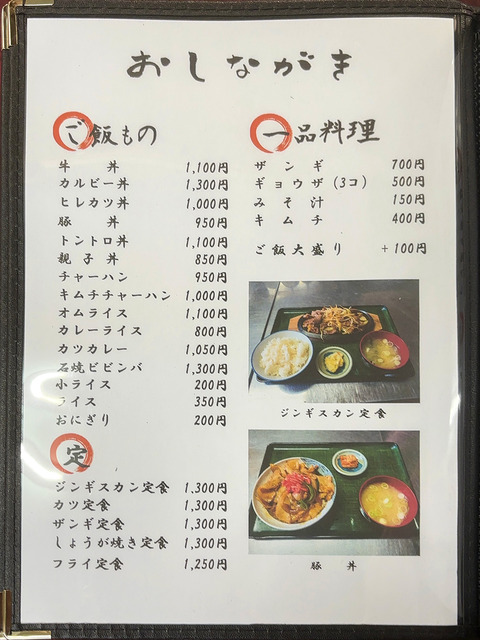 おしながき
ご飯もの
牛丼 1,100円
カルビー丼 1,300円
ヒレカツ丼 1,000円
豚丼 950円
トントロ丼 1,100円
親子丼 850円
チャーハン 950円
キムチチャーハン 1,000円
オムライス 1,100円
カレーライス 800円
カツカレー 1,050円
石焼ビビンバ 1,300円
小ライス 200円
ライス 350円
おにぎり 200円
定
ジンギスカン定食 1,300円
カツ定食 1,300円
ザンギ定食 1,300円
しょうが焼き定食 1,300円
フライ定食 1,250円
一品料理
ザンギ 700円
ギョウザ(3コ) 500円
みそ汁 150円
キムチ 400円
ご飯大盛り +100円
ジンギスカン定食
豚丼